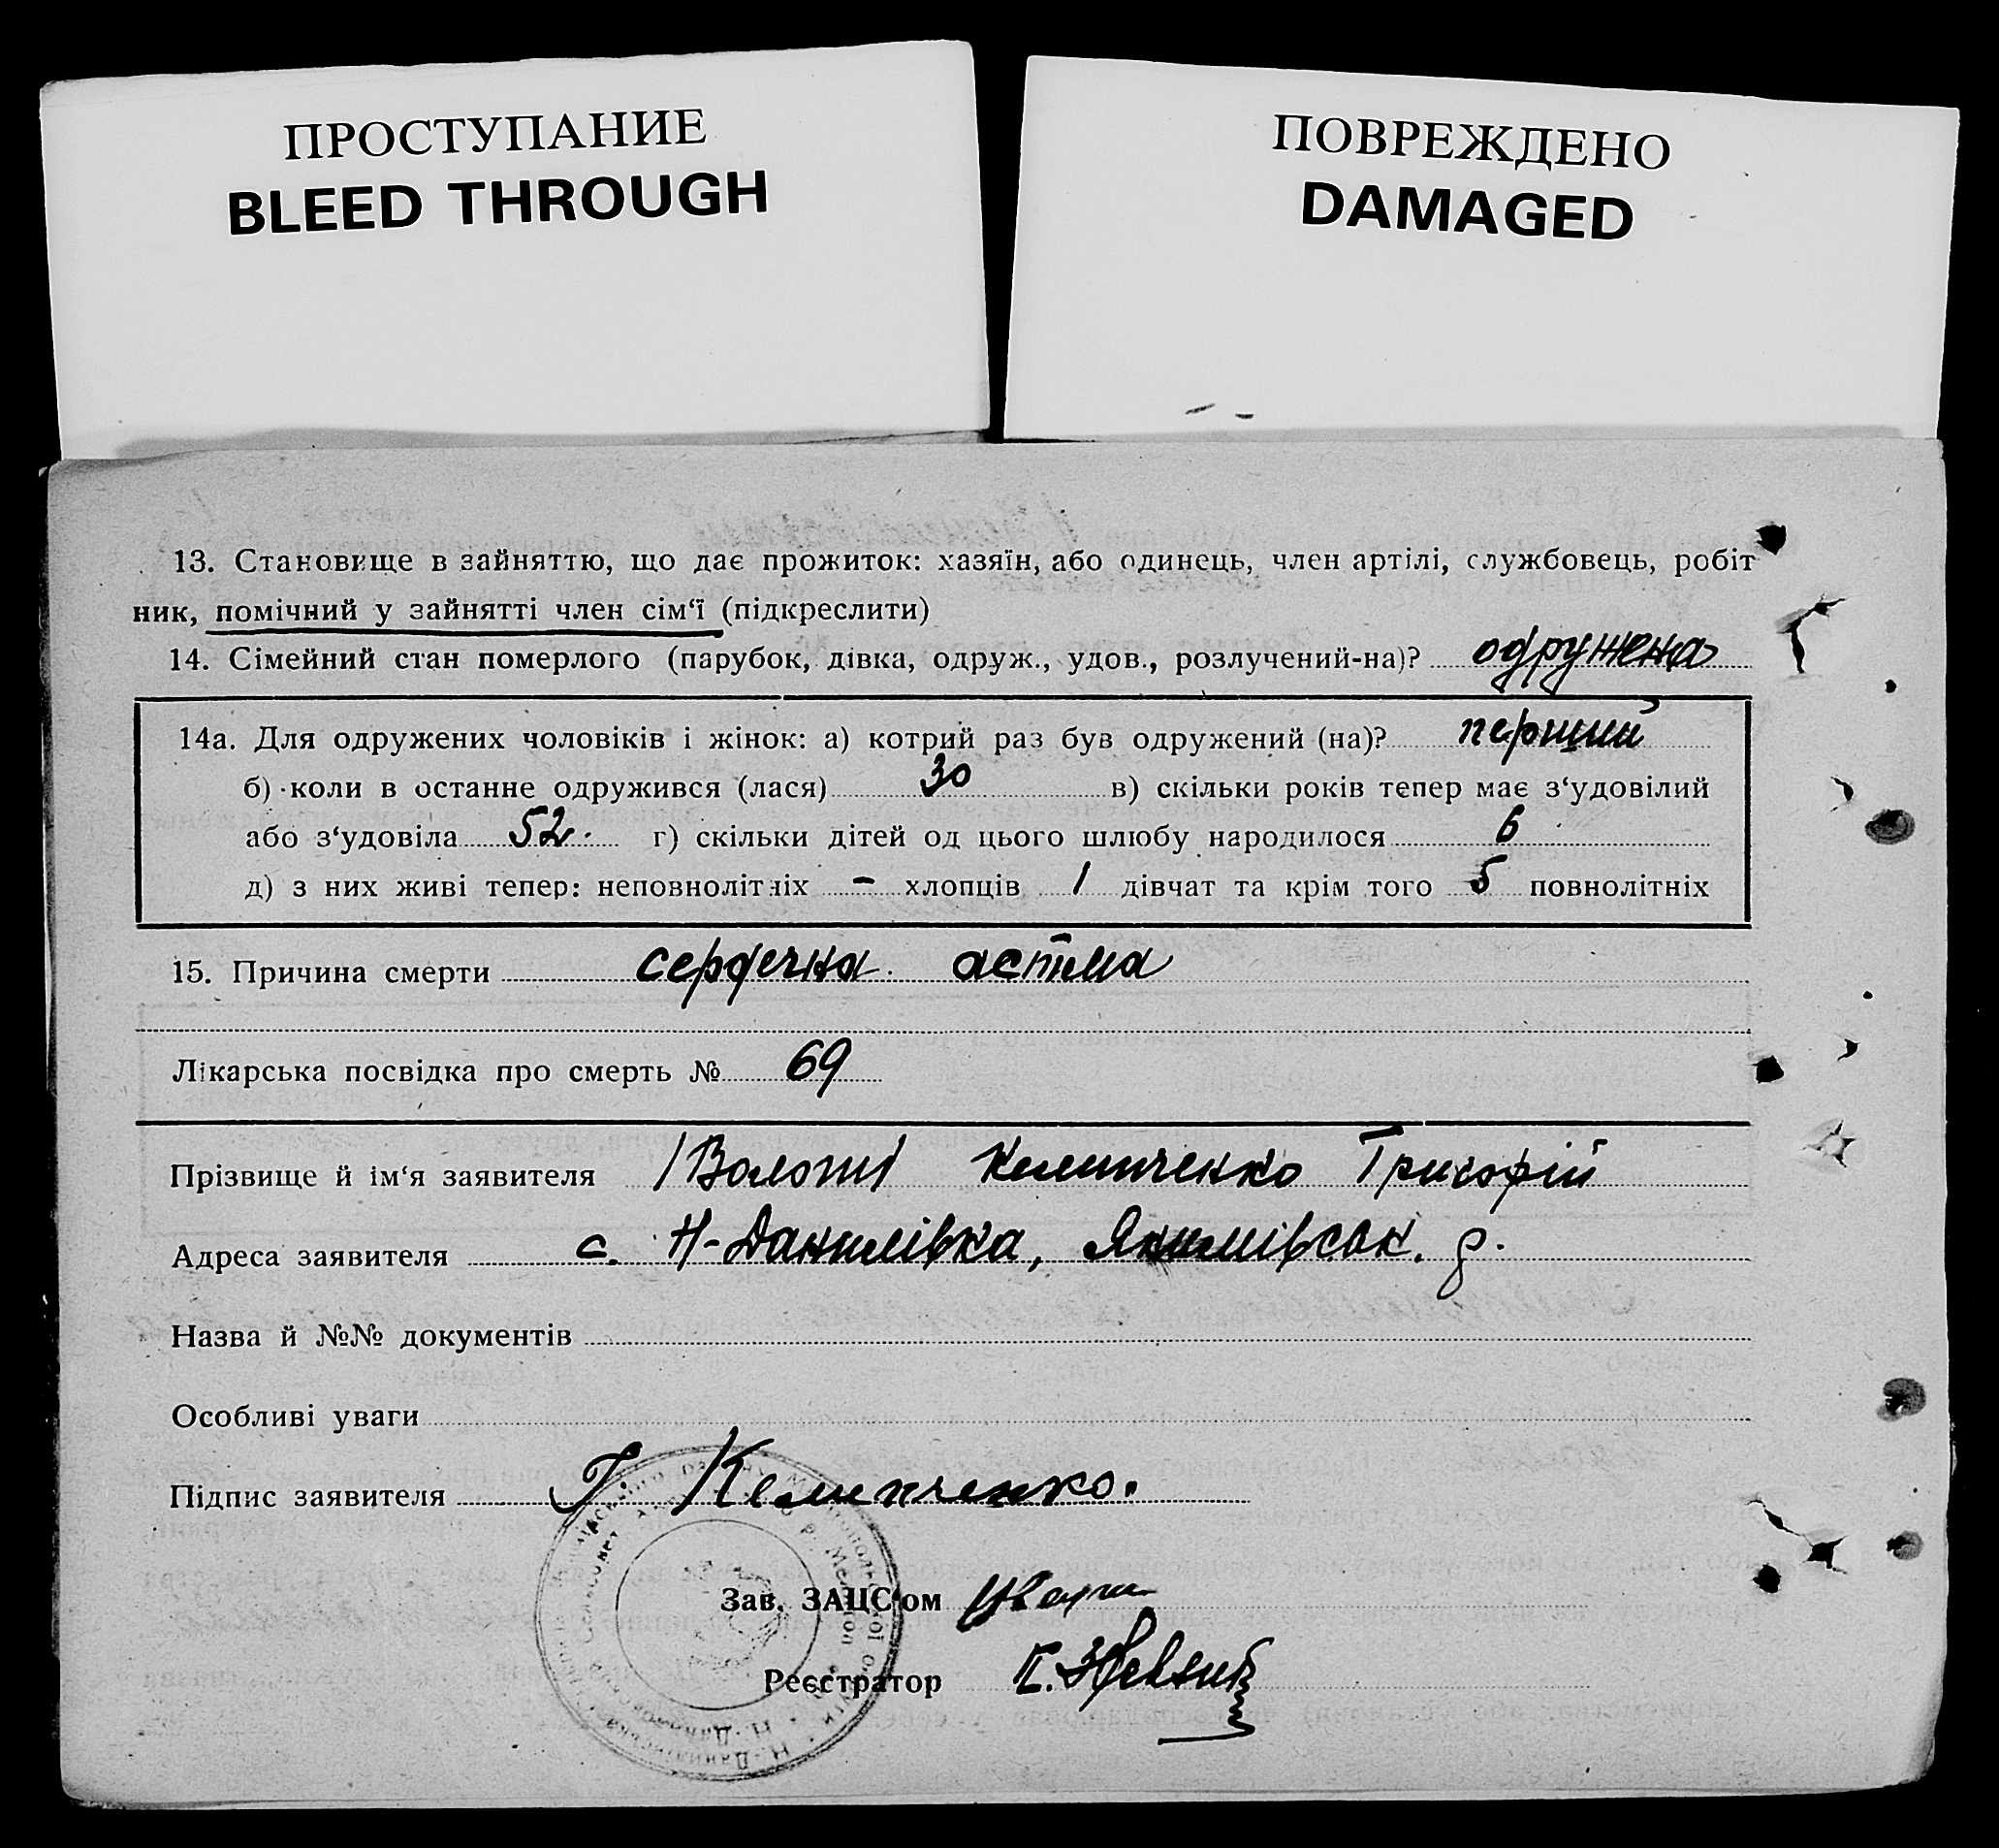 ПРОСТУПАНИЕ
BLEED THROUGH
ПОВРЕЖДЕНО
DAMAGED
13. Становище в зайняттю, що дає прожиток: хазяїн, або одинець, член артілі, службовець, робіт
ник, помічний у зайнятті член сім'ї (підкреслити)
14. Сімейний стан померлого (парубок, дівка, одруж., удов., розлучений-на)? одружена
14а. Для одружених чоловіків і жінок: а) котрий раз був одружений (на)? перший
б) коли в останне одружився (лася) 30 в) скільки років тепер має з'удовілий
або з'удовіла 52. г) скільки дітей од цього шлюбу народилося 6
д) з них живі тепер: неповнолітніх – хлопців 1 дівчат та крім того 5 повнолітніх
15. Причина смерти сердечна астма
Лікарська посвідка про смерть № 69
Прізвище й ім'я заявителя Григорій
Адреса заявителя с. Н-Данилівка, Якимівськ. р.
Назва й №№ документів
Особливі уваги
Підпис заявителя Г.
Зав. ЗАЦС'ом
Реєстратор